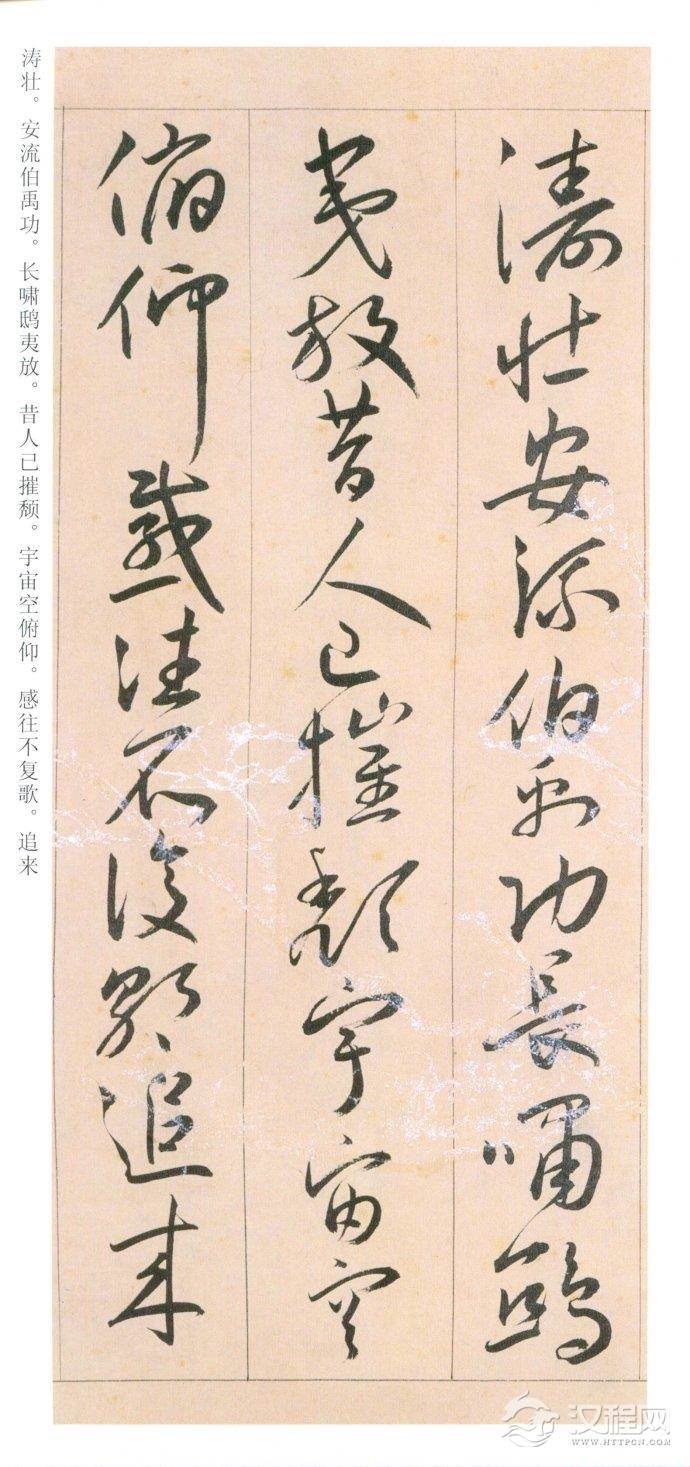 濤壯安流伯禹功長嘯鴟
夷放昔人已摧頹宇宙空
俯仰感往不復歌追来
涛壮。安流伯禹功。长啸鸱夷放。昔人已摧颓。宇宙空俯仰。感往不复歌。追来
汉程网
WWW.HTTPCN.COM